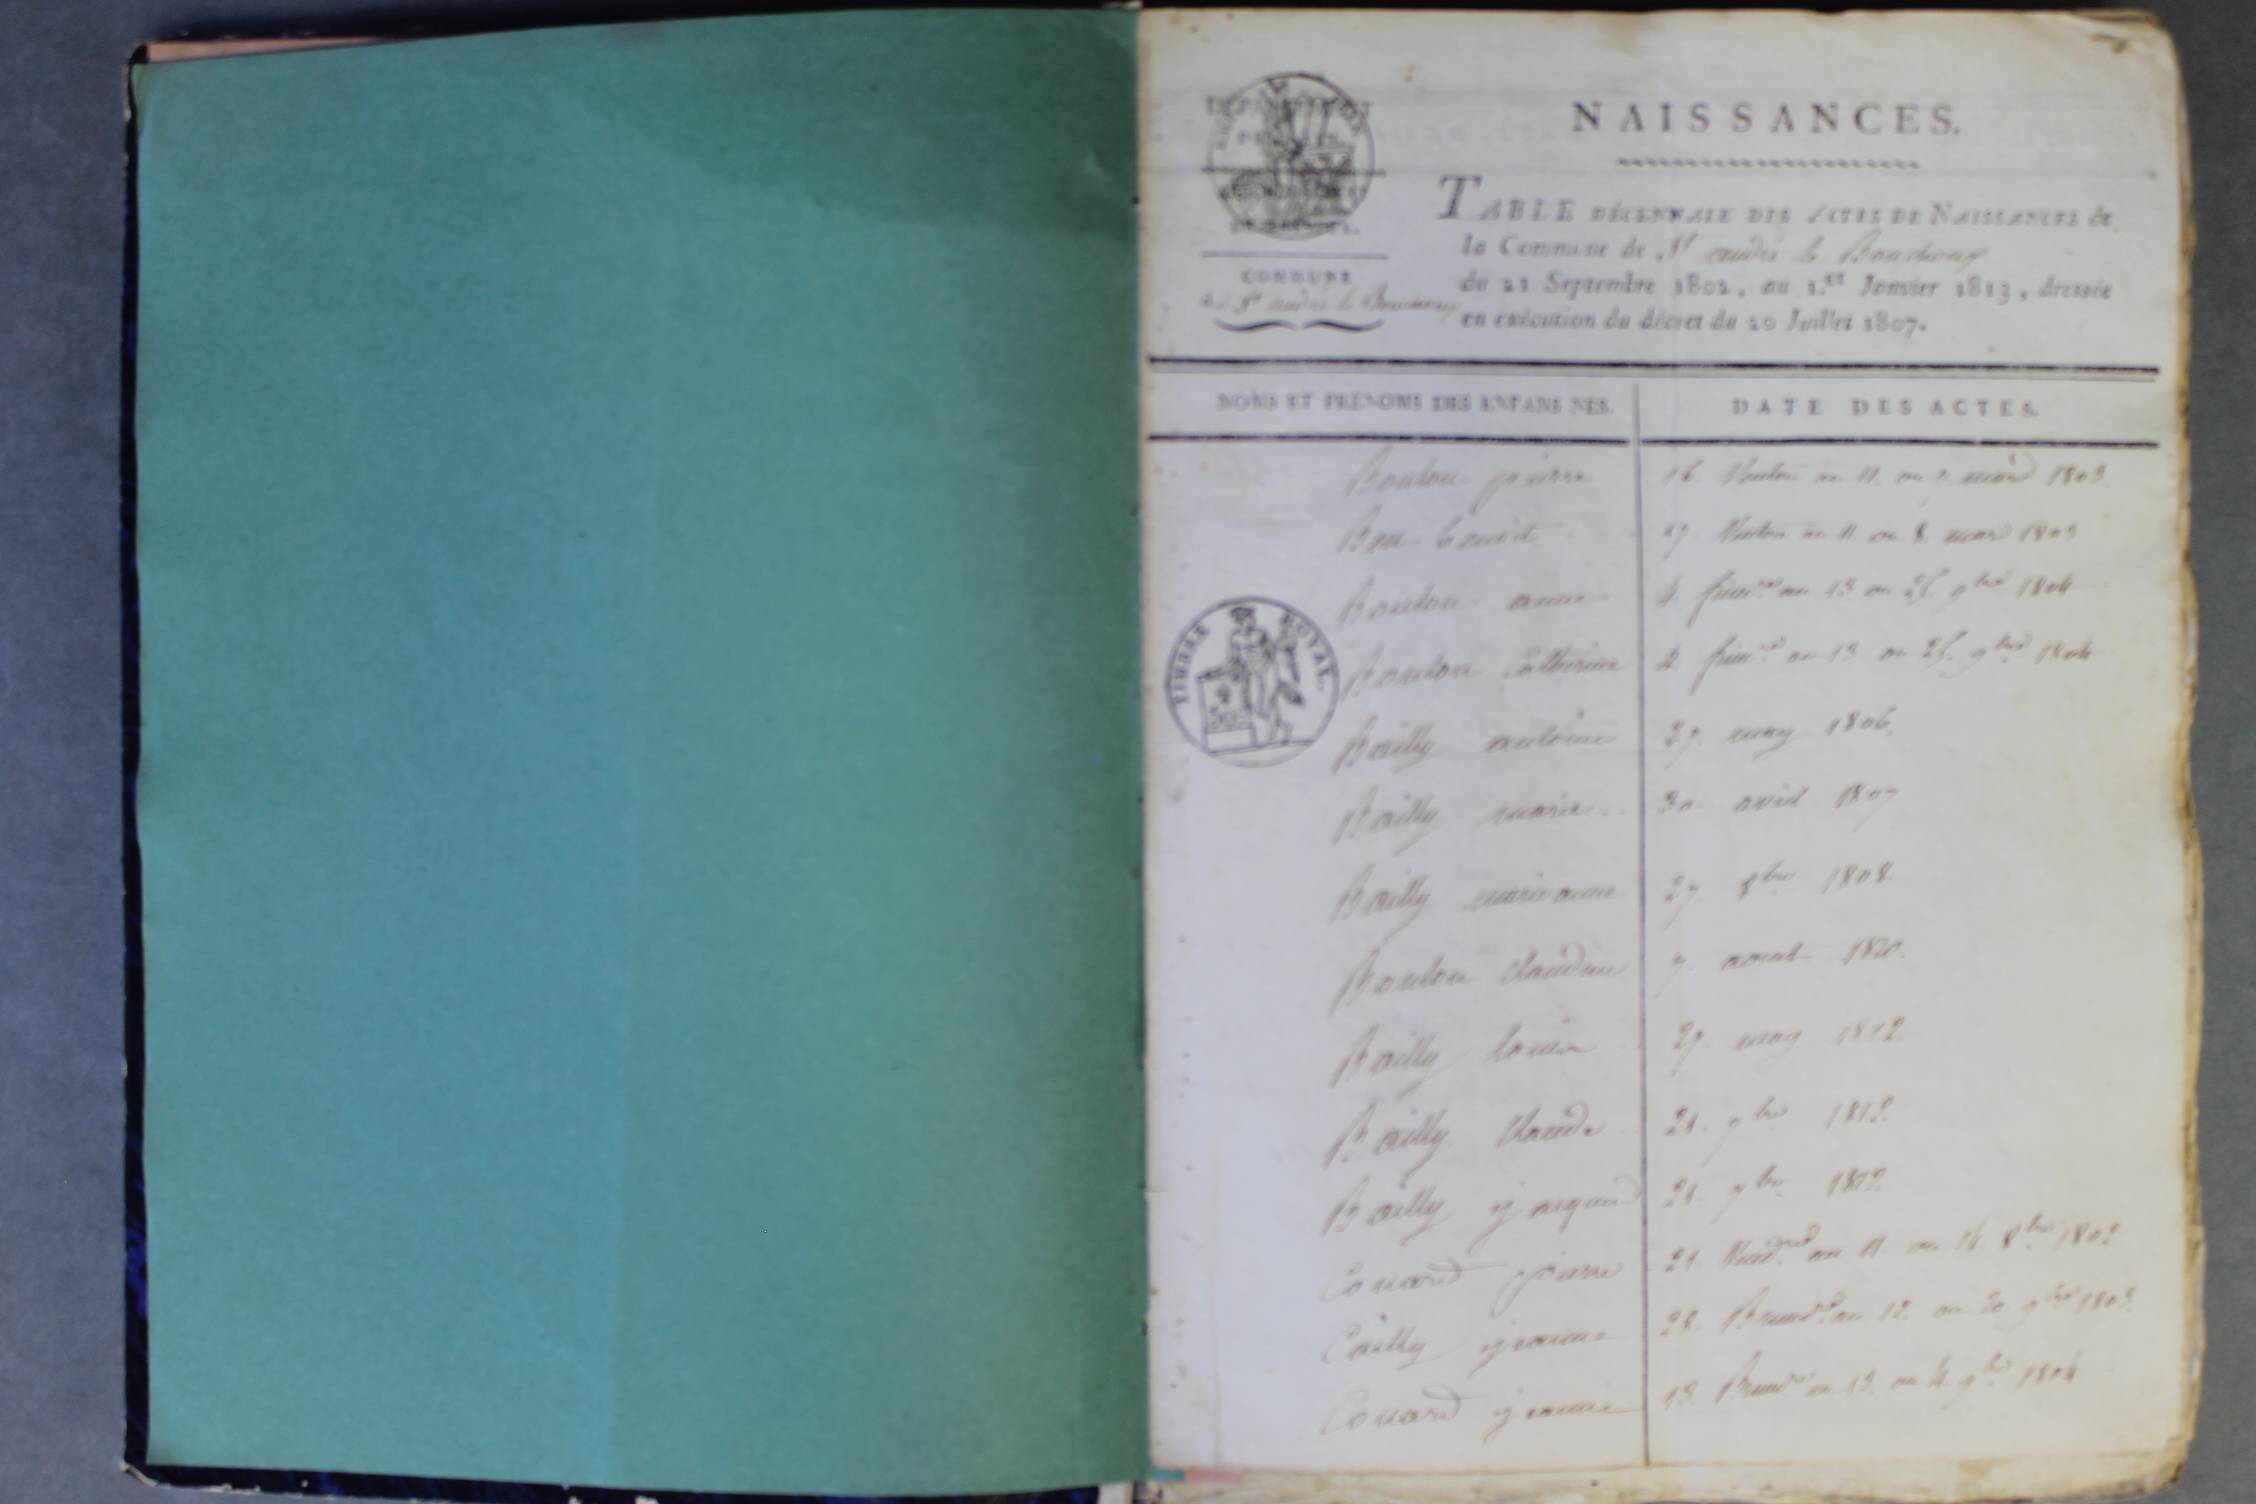 NAISSANCES.
TABLE DÉCENNALE DES ACTES DE NAISSANCES de
la Commune de St andré le Bouchoux
du 21 Septembre 1802, au 1.er Janvier 1813, dressée
en exécution du décret du 20 Juillet 1807.
DÉPARTEMENT
COMMUNE
de St andré le Bouchoux
NOMS ET PRÉNOMS DES ENFANS NÉS.
DATE DES ACTES.
TIMBRE ROYAL.
Boulon pierre 16 Ventose an 11. ou 7. mars 1803
Bon benoit 17 Ventose an 11. ou 8. mars 1803
Boulon anne 4. frim.re an 13 ou 25. 9bre 1804
Boulon Catherine 4. frim.re an 13 ou 25. 9bre 1804
Bailly antoine 27. may 1806.
Bailly marie 30 avril 1807
Bailly marie anne 27. 8bre 1808.
Boulon Claudine 7. aout 1810.
Bailly Louise 27. may 1812.
Bailly Claude 21. 7bre 1812.
Bailly jacques 21. 7bre 1812.
Couard pierre 21. Vend.re an 11 ou 8bre 1802
Cailly jeanne 28. Brum.re an 12 ou 20 9bre 1803.
Couard jeanne 13. Brum.re an 13. ou 4. 9bre 1804